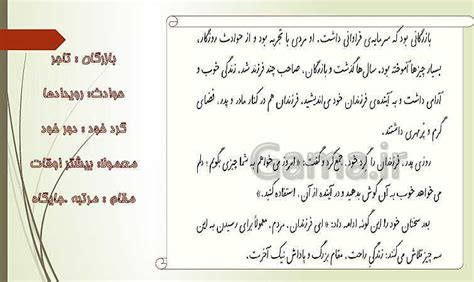 بازرگانی بود که سرمایه‌ی فراوانی داشت. او مردی با تجربه بود و از حوادث روزگار،
بسیار چیزها آموخته بود. سال‌ها گذشت و بازرگان، صاحب چند فرزند شد. زندگی خوب و
آرای داشت و به آینده‌ی فرزندان خود می‌اندیشید. فرزندان هم در کنار مادر و پدر، فضای
گرم و پرمهری داشتند.
روزی پدر، فرزندان را گرد خود، جمع کرد و گفت: « امروز می‌خواهم به شما چیزی بگویم؛ دلم
می‌خواهد خوب به آن گوش بدهید و در آینده از آن، استفاده کنید.»
بعد سخنان خود را این گونه ادامه داد: « ای فرزندان، مردم، معمولاً برای رسیدن به این
سه چیز تلاش می‌کنند: زندگیِ راحت، مقام بزرگ و پاداش نیک آخرت.
بازرگان : تاجر
حوادث: رویدادها
گرد خود : دور خود
معمولا: بیشتر اوقات
مقام : مرتبه .جایگاه
Gama.ir